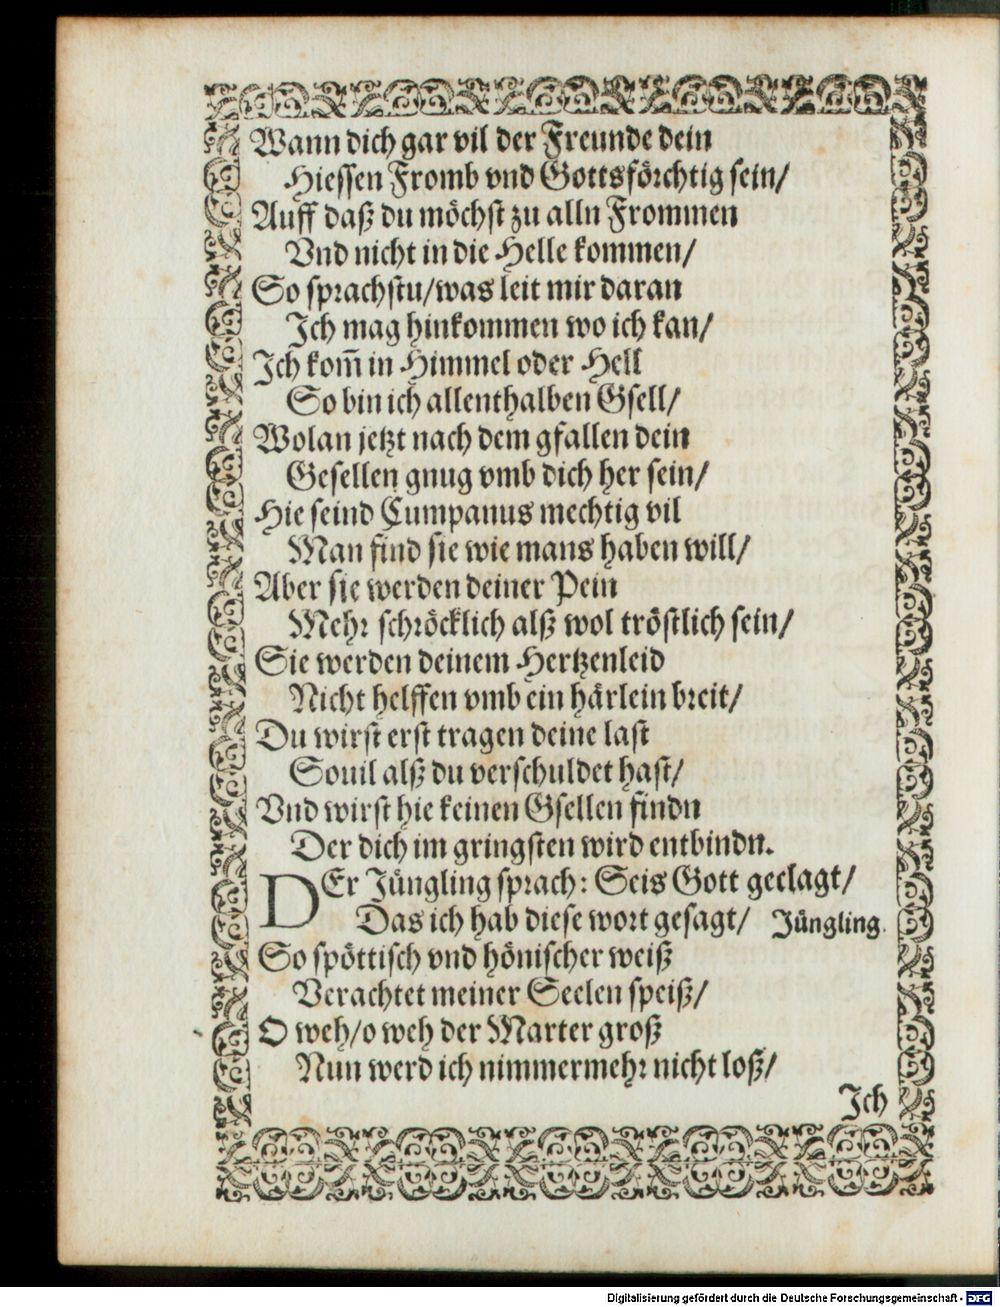 Wann dich gar vil der Freunde dein
Hiessen Fromb vnd Gottsförchtig sein/
Auff daß du möchst zu alln Frommen
Vnd nicht in die Helle kommen/
So sprachstu/was leit mir daran
Ich mag hinkommen wo ich kan/
Ich kom̃ in Himmel oder Hell
So bin ich allenthalben Gsell/
Wolan jetzt nach dem gfallen dein
Gesellen gnug vmb dich her sein/
Hie seind Cumpanus mechtig vil
Man find sie wie mans haben will/
Aber sie werden deiner Pein
Mehr schröcklich alß wol tröstlich sein/
Sie werden deinem Hertzenleid
Nicht helffen vmb ein härlein breit/
Du wirst erst tragen deine last
Souil alß du verschuldet hast/
Vnd wirst hie keinen Gsellen findn
Der dich im gringsten wird entbindn.
DEr Jüngling sprach: Seis Gott geclagt/
Das ich hab diese wort gesagt/ Jüngling.
So spöttisch vnd hönischer weiß
Verachtet meiner Seelen speiß/
O weh/o weh der Marter groß
Nun werd ich nimmermehr nicht loß/
Ich
Digitalisierung gefördert durch die Deutsche Forschungsgemeinschaft - DFG